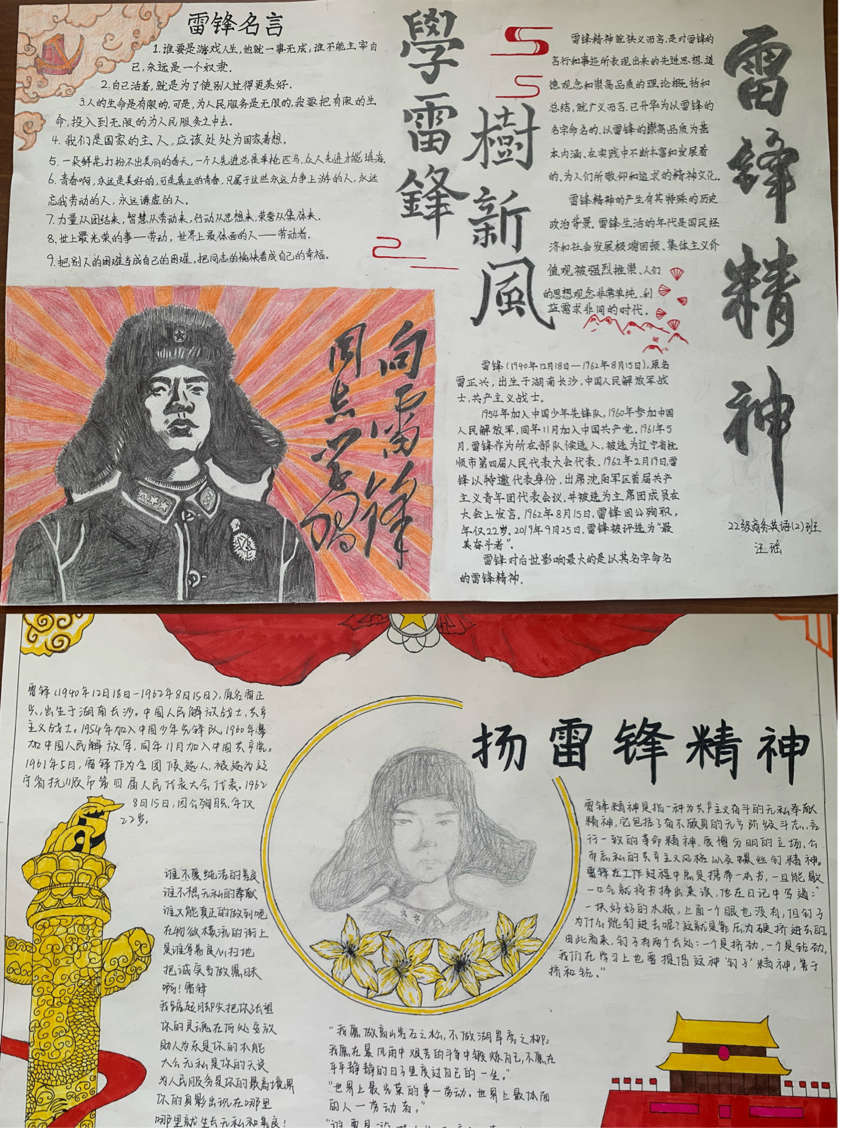 雷锋名言
1.谁要是游戏人生,他就一事无成,谁不能主宰自
己,永远是一个奴隶。
2.自己活着,就是为了使别人过得更美好。
3.人的生命是有限的,可是,为人民服务是无限的,我要把有限的生
命,投入到无限的为人民服务之中去。
4.我们是国家的主人,应该处处为国家着想。
5.一朵鲜花打扮不出美丽的春天,一个人先进总是单枪匹马,众人先进才能填海。
6.青春啊,永远是美好的,可是真正的青春,只属于这些永远力争上游的人,永远
忘我劳动的人,永远谦虚的人。
7.力量从团结来,智慧从劳动来,行动从思想来,荣誉从集体来。
8.世上最光荣的事——劳动,世界上最体面的人——劳动者。
9.把别人的困难当成自己的困难,把同志的愉快看成自己的幸福。
學雷鋒
樹新風
雷锋精神就狭义而言,是对雷锋的
言行和事迹所表现出来的先进思想、道
德观念和崇高品质的理论概括和
总结,就广义而言,已升华为以雷锋的
名字命名的,以雷锋的崇高品质为基
本内涵、在实践中不断丰富和发展着
的,为人们所敬仰和追求的精神文化。
雷锋精神的产生有其特殊的历史
政治背景。雷锋生活的年代是国民经
济和社会发展极端困顿、集体主义价
值观被强烈推崇、人们
的思想观念非常单纯、利
益需求非同的时代。
雷锋精神
向雷锋
同志学习
雷锋(1940年12月18日-1962年8月15日),原名
雷正兴,出生于湖南长沙,中国人民解放军战
士,共产主义战士。
1954年加入中国少年先锋队,1960年参加中国
人民解放军,同年11月加入中国共产党。1961年5
月,雷锋作为所在部队候选人,被选为辽宁省抚
顺市第四届人民代表大会代表。1962年2月19日,雷
锋以特邀代表身份,出席沈阳军区首届共产
主义青年团代表会议,并被选为主席团成员在
大会上发言。1962年8月15日,雷锋因公殉职,
年仅22岁。2019年9月25日,雷锋被评选为"最
美奋斗者"。
雷锋对后世影响最大的是以其名字命名
的雷锋精神。
22级商务英语(2)班
汪瑶
雷锋(1940年12月18日-1962年8月15日),原名雷正
兴,出生于湖南长沙。中国人民解放战士,共产
主义战士。1954年加入中国少年先锋队,1960年参
加中国人民解放军,同年11月加入中国共产党。
1961年5月,雷锋作为全团候选人,被选为辽
宁省抚顺市第四届人民代表大会代表。1962
8月15日,因公殉职,年仅
22岁。
扬雷锋精神
雷锋精神是指一种为共产主义奋斗的无私奉献
精神,它包括了有不敌真的无产阶级斗志,言
行一致的革命精神,爱憎分明的立场,公
而忘私的共产主义风格以及螺丝钉精神。
雷锋在工作过程中总是携带一本书,一旦能歇
一口气就将书捧出来读,他在日记中写道:"
一块好好的木板,上面一个眼也没有,但钉子
为什么能钉进去呢?这就是靠压力硬挤进去的。
由此看来,钉子有两个长处:一个是挤劲,一个是钻劲,
我们在学习上也要提倡这种'钉子'精神,善于
挤和钻。"
谁不爱纯洁的善良
谁不想无私的奉献
谁又能真正的做到呢
在物欲横流的街上
是谁将善良
把诚实当做愚昧
啊!雷锋
我骑超月却
你的灵魂在何处安放
助人为乐是你的本能
大公无私是你的天资
为人民服务是你的最高境界
你的身影出现在哪里
哪里就生长无私和善良!
"我愿做高山岩石之松,不做湖岸旁之柳。
我愿在暴风雨中艰苦的斗争中锻炼自己,不愿在
平平静静的日子里度过自己的一生。"
"世界上最光荣的事—劳动。世界上最体面
的人—劳动者。"